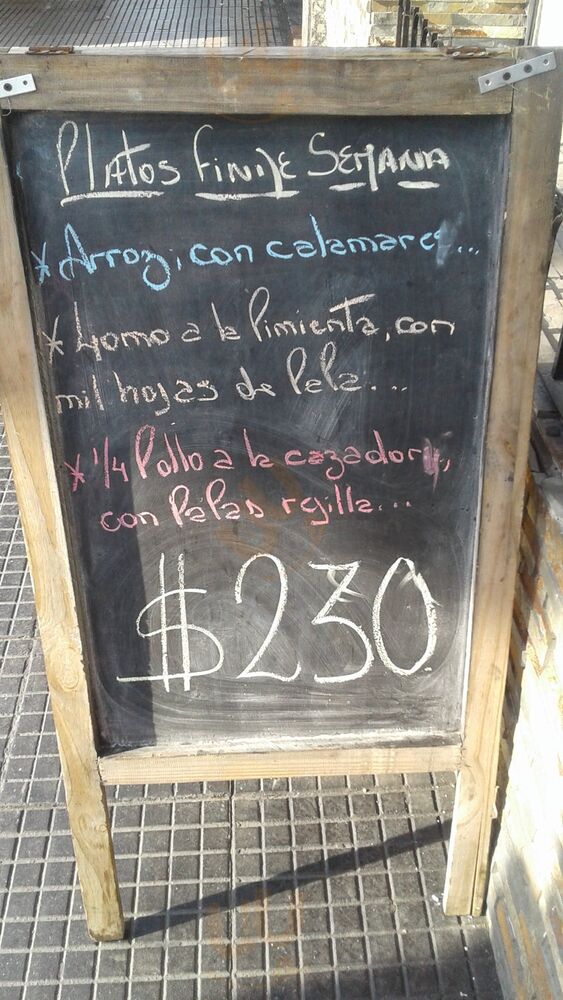 Platos Fin de Semana
* Arroz, con calamares...
* Lomo a la Pimienta, con
mil hojas de Papa...
* 1/4 Pollo a la cazadora,
con Papas rejilla...
$230